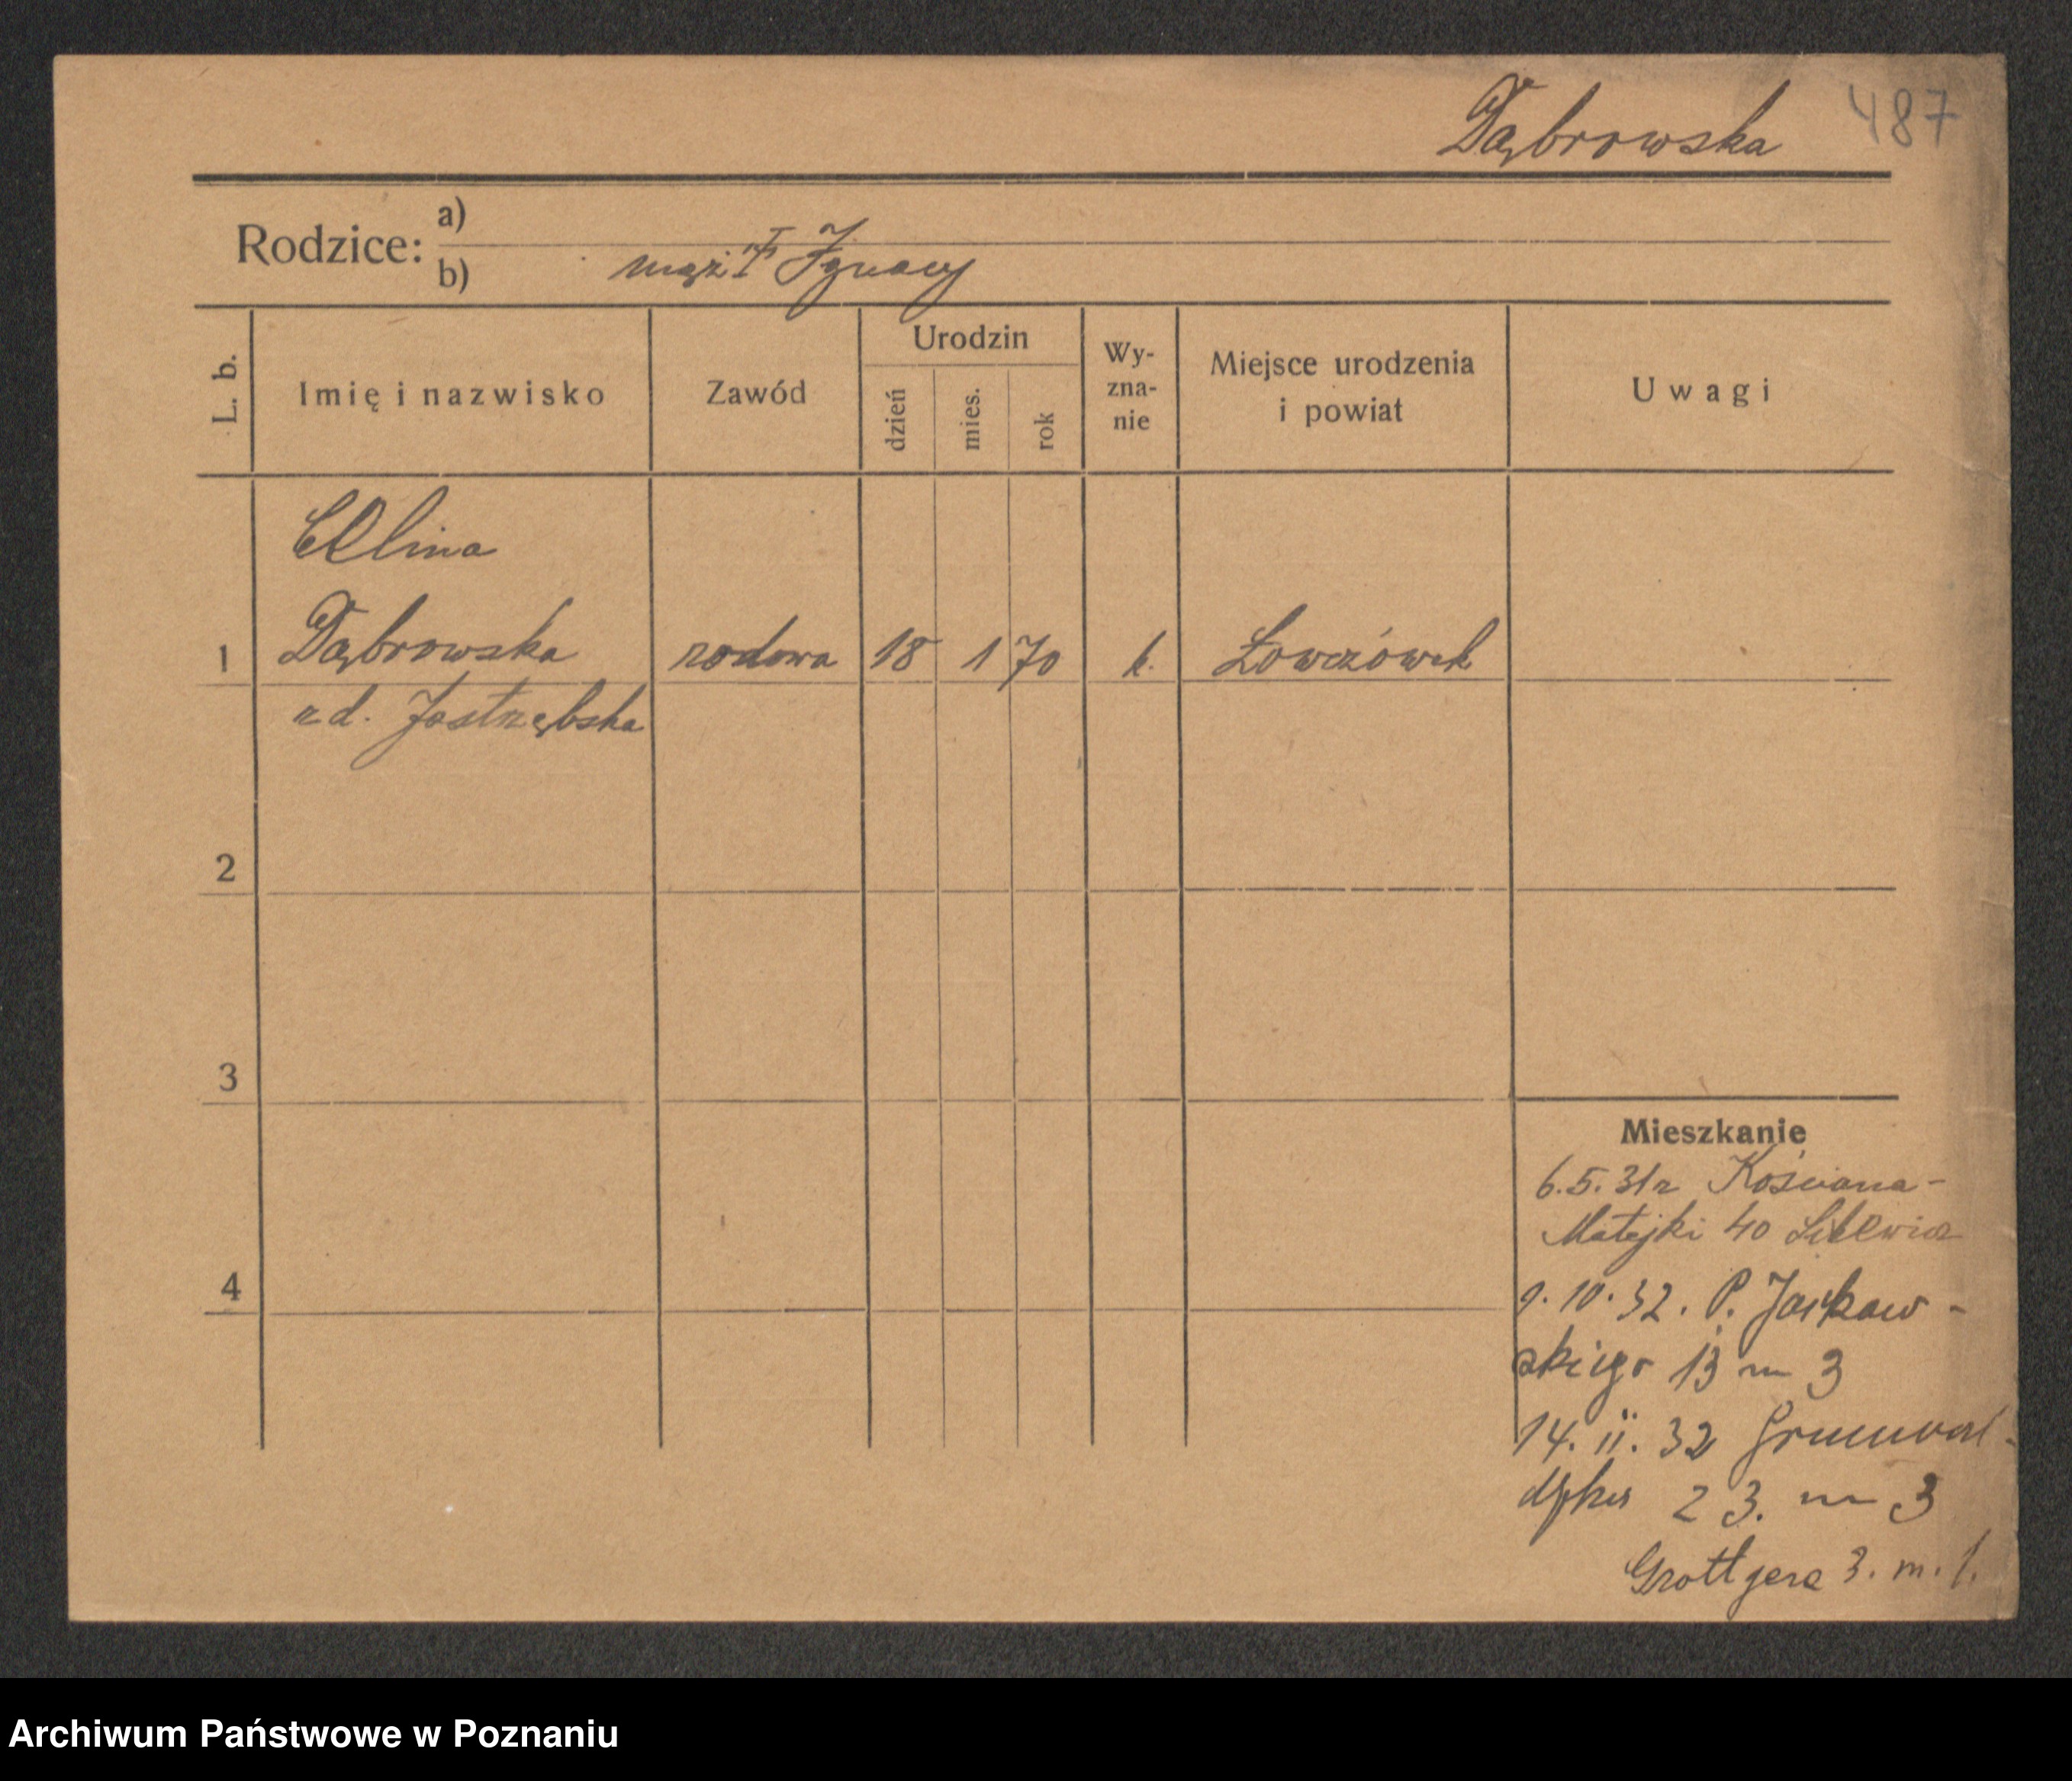 Dąbrowska 487
Rodzice: a)
b) mąż † Ignacy
L. b. Imię i nazwisko Zawód Urodzin dzień mies. rok Wy-zna-nie Miejsce urodzenia i powiat Uwagi
Celina
1 Dąbrowska 18 1 70 k. Łowczówek
zd. Jastrzębska
2
3
4
Mieszkanie
6.5.31r Kościana-
Matejki 40
9.10.32. P. Jackow-
skiego 13 m 3
14. 11. 32 Grunwal-
dzka 23. m 3
Grottgera 3. m. 1.
Archiwum Państwowe w Poznaniu